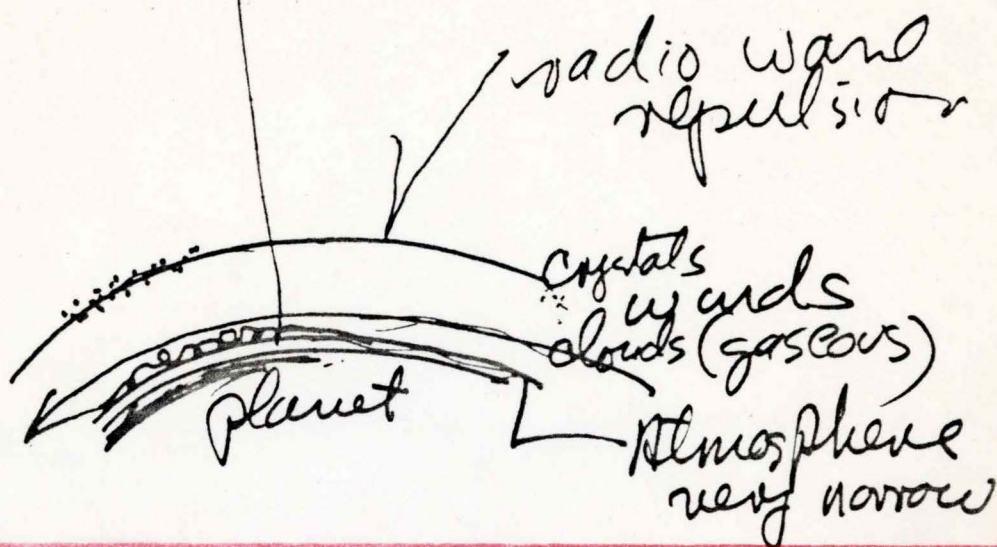 radio wave
repulsion
crystals
winds
clouds (gaseous)
planet
Atmosphere
very narrow